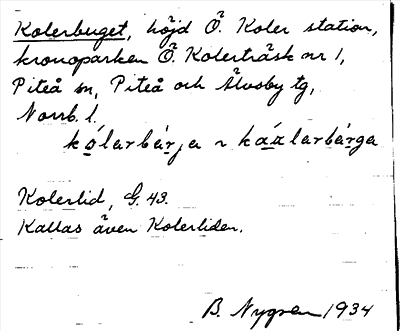 Kolerbuget, höjd Ö. Koler station,
kronoparken Ö. Kolerträsk nr 1,
Piteå sn, Piteå och Älvsby tg,
Norrb. l.
kólarbár̨ja ~ káalarbárga
Kolerlid, G. 43.
Kallas även Kolerliden.
B. Nygren 1934